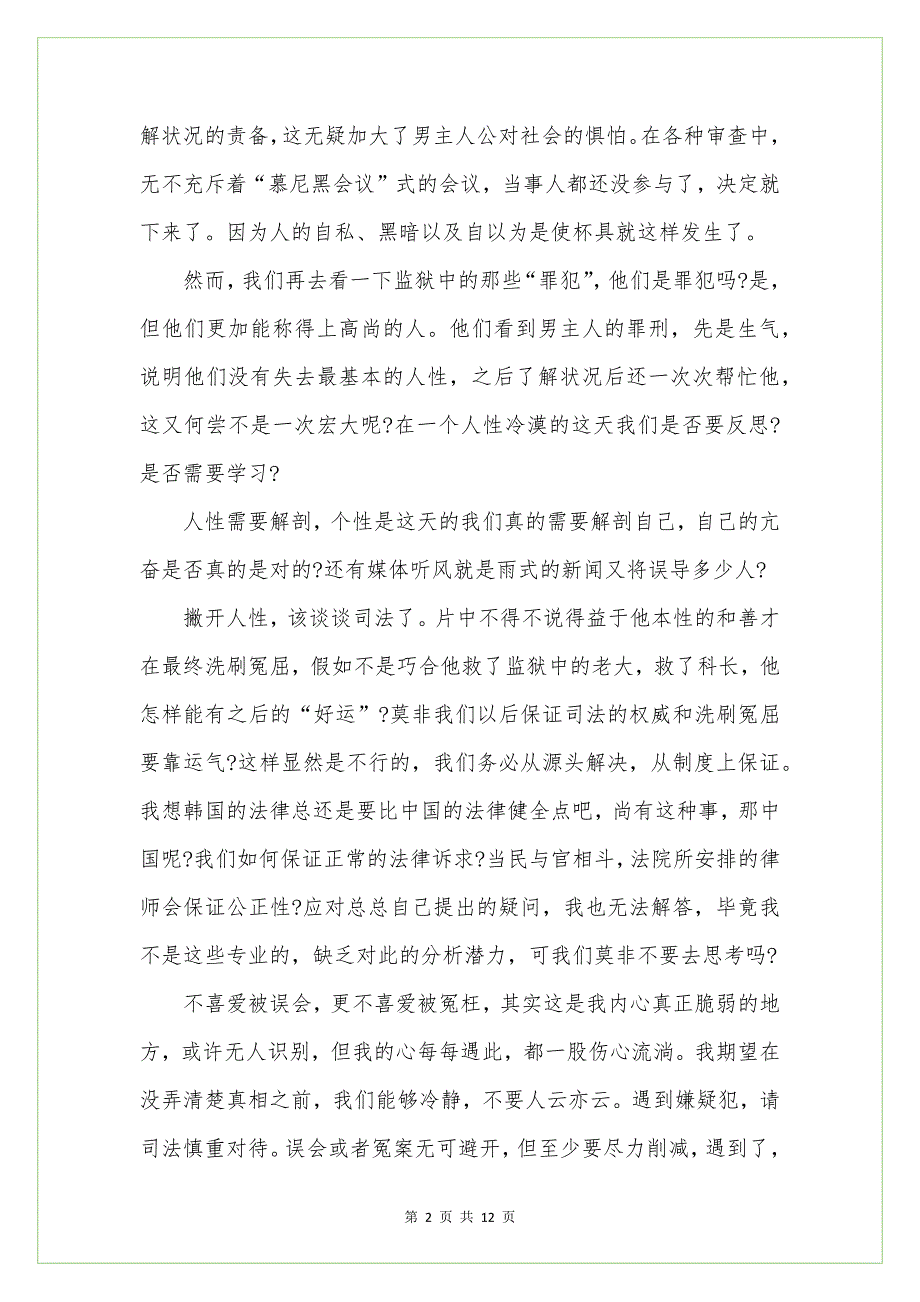 解状况的责备，这无疑加大了男主人公对社会的惧怕。在各种审查中，
无不充斥着“慕尼黑会议”式的会议，当事人都还没参与了，决定就
下来了。因为人的自私、黑暗以及自以为是使杯具就这样发生了。
然而，我们再去看一下监狱中的那些“罪犯”，他们是罪犯吗?是，
但他们更加能称得上高尚的人。他们看到男主人的罪刑，先是生气，
说明他们没有失去最基本的人性，之后了解状况后还一次次帮忙他，
这又何尝不是一次宏大呢?在一个人性冷漠的这天我们是否要反思?
是否需要学习?
人性需要解剖，个性是这天的我们真的需要解剖自己，自己的亢
奋是否真的是对的?还有媒体听风就是雨式的新闻又将误导多少人?
撇开人性，该谈谈司法了。片中不得不说得益于他本性的和善才
在最终洗刷冤屈，假如不是巧合他救了监狱中的老大，救了科长，他
怎样能有之后的“好运”?莫非我们以后保证司法的权威和洗刷冤屈
要靠运气?这样显然是不行的，我们务必从源头解决，从制度上保证。
我想韩国的法律总还是要比中国的法律健全点吧，尚有这种事，那中
国呢?我们如何保证正常的法律诉求?当民与官相斗，法院所安排的律
师会保证公正性?应对总总自己提出的疑问，我也无法解答，毕竟我
不是这些专业的，缺乏对此的分析潜力，可我们莫非不要去思考吗?
不喜爱被误会，更不喜爱被冤枉，其实这是我内心真正脆弱的地
方，或许无人识别，但我的心每每遇此，都一股伤心流淌。我期望在
没弄清楚真相之前，我们能够冷静，不要人云亦云。遇到嫌疑犯，请
司法慎重对待。误会或者冤案无可避开，但至少要尽力削减，遇到了，
第 2 页 共 12 页